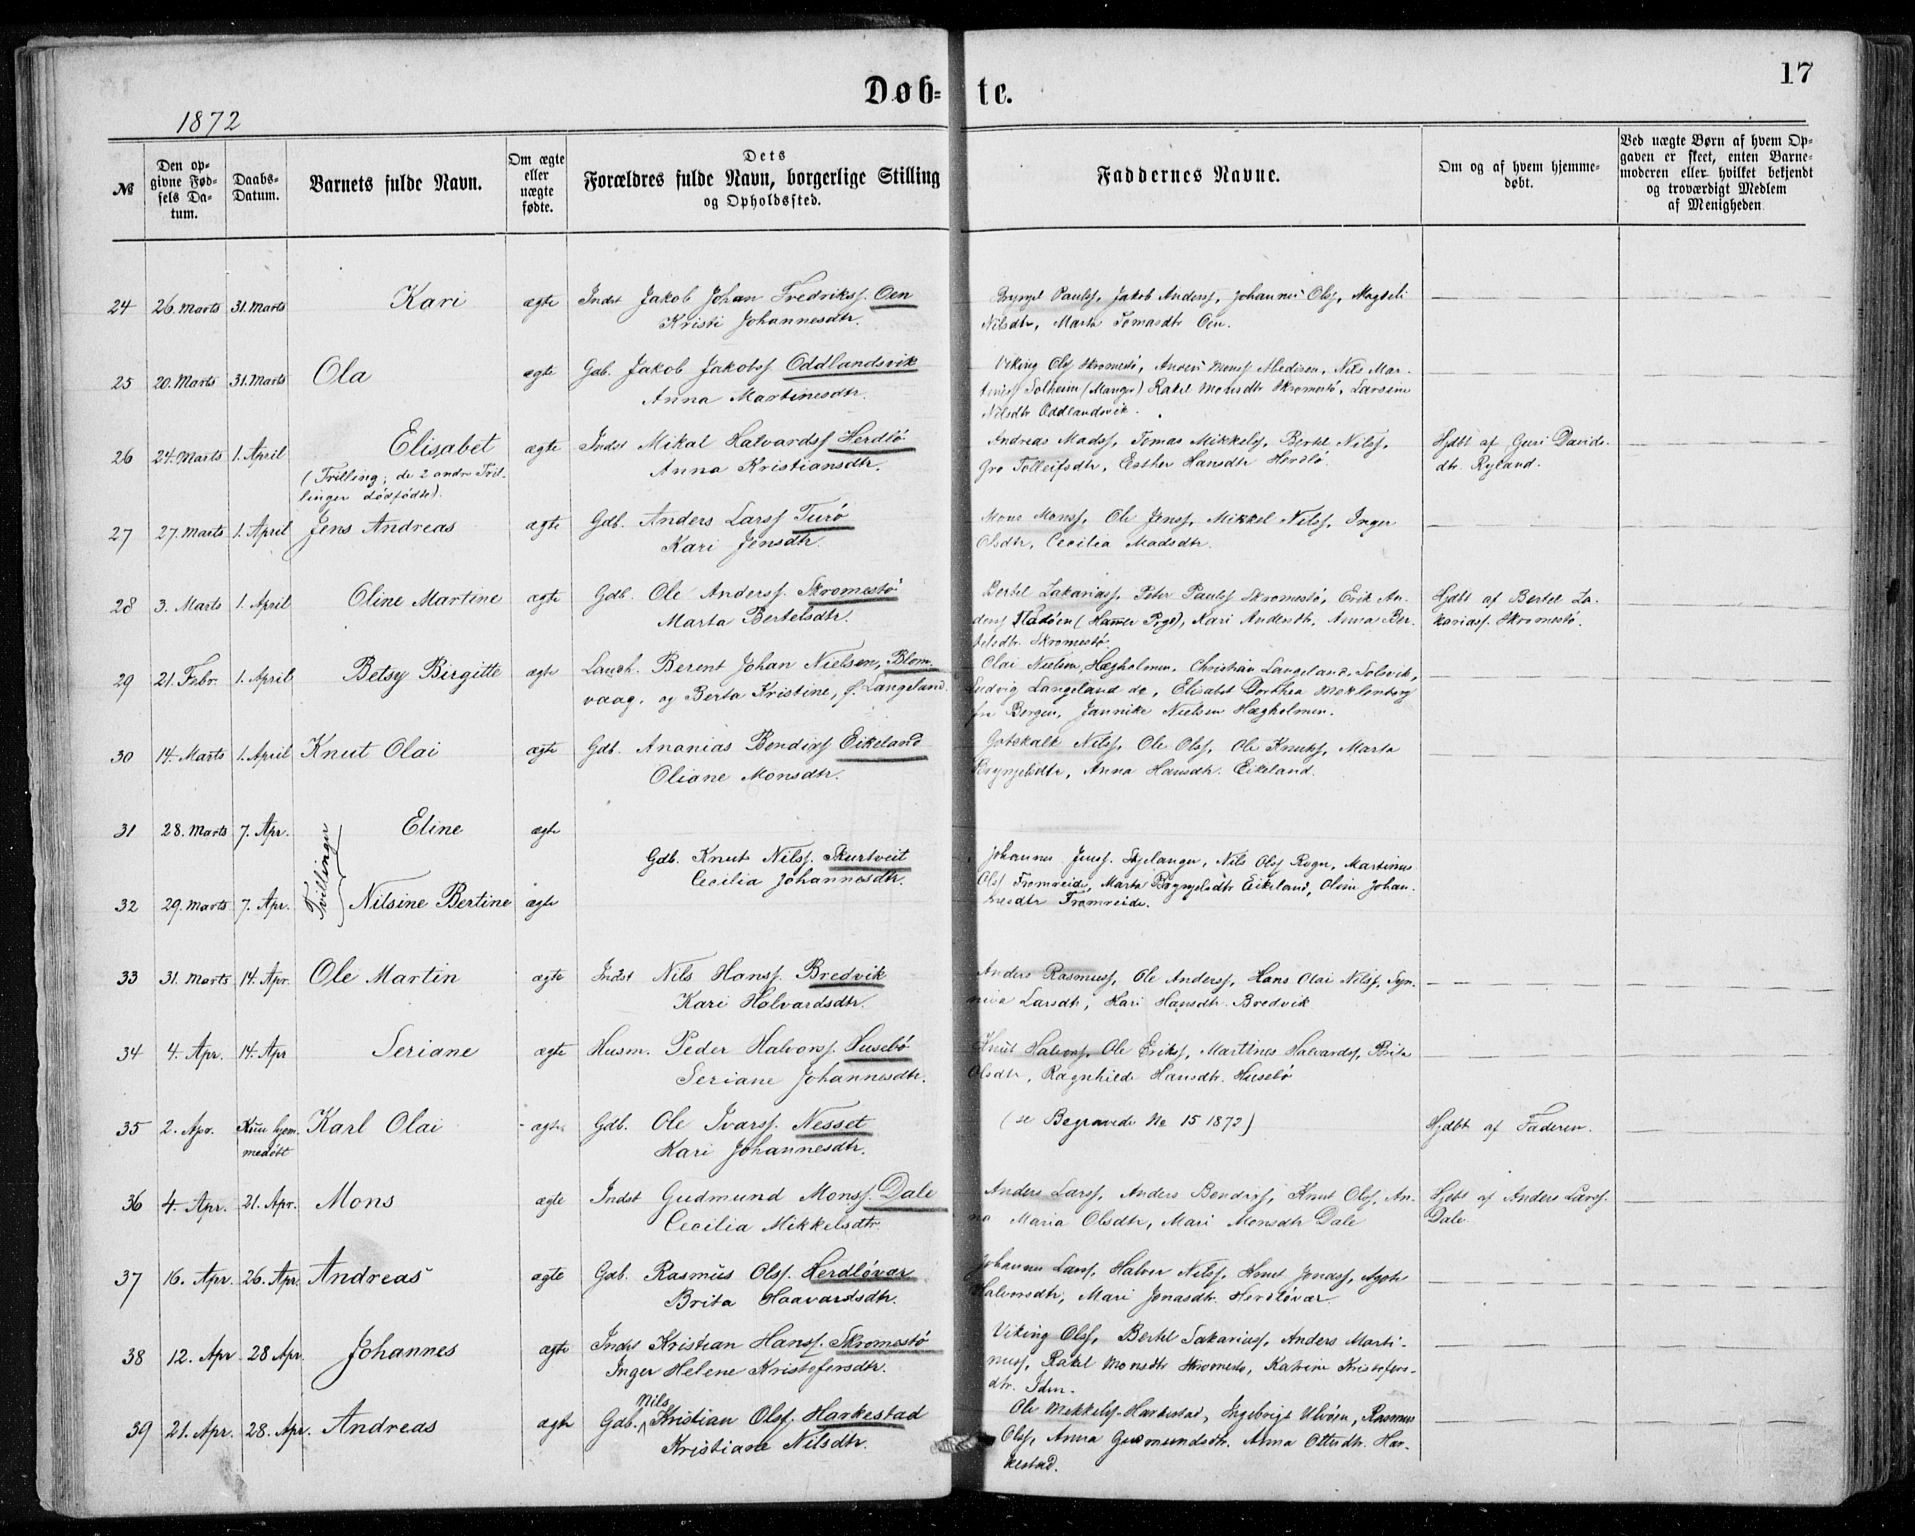 17
Døb= te.
1872
№
Den op-
givne Fød-
sels Da-
tum.
Daabs-
Datum.
Barnets fulde Navn.
Om ægte
eller
uægte
fødte.
Dets
Forældres fulde Navn, borgerlige Stilling
og Opholdssted.
Faddernes Navne.
Om og af hvem hjemme-
døbt.
Ved uægte Børn af hvem Op-
gaven er skeet, enten Barne-
moderen eller hvilket bekjendt
og troværdigt Medlem
af Menigheden
24 26. Marts 31. Marts Kari ægte Indst Jakob Johan Fredrikss. Oen
Kristi Johannesdtr.
Brynjel Paulss, Jakob Anderss, Johannes Olss, Magteli
Nilsdtr, Marta Tomasdtr Oen.
25 20. Marts 31. Marts Ola ægte Gdb. Jakob Jakobss Oddlandsvik
Anna Martinesdtr.
Viking Olss Skromestö, Anders Monss Aledisen, Nils Mar-
tiness Solheim (Manger) Rakel Monsdtr Skromestö, Larsine
Nilsdtr Oddlandsvik.
26 24. Marts 1. April Elisabet ægte Indst Mikal Halvardss Herdlö
(Trilling; de 2 andre Tril-
linger dödfödte).
Anna Kristiansdtr.
Andreas Madss, Tomas Mikkelss, Bertel Nilss,
Gro Tolleifsdtr, Esther Hansdtr Herdlö.
Hjdbt af Guri Davids-
dtr. Ryland.
27 27. Marts 1. April Jens Andreas ægte Gdb. Anders Larss Turö
Kari Jensdtr.
Mons Monss, Ole Jenss, Mikkel Nilss, Inger
Olsdtr, Cecilia Madsdtr.
28 3. Marts 1. April Oline Martine ægte Gdb. Ole Anderss. Skromestö
Marta Bertelsdtr.
Bertel Zakariass, Peter Paulss Skromestö, Erik An-
derss Flatöen (Hamer Pgd), Kari Andersdtr, Anna Ber-
telsdtr Skromestö.
Hjdbt af Bertel Za-
kariass. Skromestö.
29 21. Febr. 1. April Betsy Birgitte ægte Landh. Berent Johan Nielsen, Blom-
vaag, og Berta Kristine, f. Langeland.
Olai Nielsen Hægholmen, Christian Langeland, Solsvik,
Ludvig Langeland do, Elisabet Dorthea Meklenborg
fra Bergen, Jannike Nielsen Hægholmen.
30 14. Marts 1. April Knut Olai ægte Gdb. Ananias Bendixs Eikeland
Oliane Monsdtr.
Gotskalk Nilss, Ole Olss, Ole Knutss, Marta
Brynjelsdtr, Anna Hansdtr. Eikeland.
31 28. Marts 7. Apr. Eline ægte
Tvillinger
Gdb. Knut Nilss. Skurtveit
Cecilia Johannesdtr.
Johannes Jenss. Skjelanger, Nils Olss Rogn, Martinus
Olss Fromreide, Marta Brynjelsdtr Eikeland, Oline Johan-
nesdtr Fromreide.
32 29. Marts 7. Apr. Nilsine Bertine ægte
33 31. Marts 14. Apr. Ole Martin ægte Indst Nils Hanss. Bredvik
Kari Halvardsdtr.
Anders Rasmuss, Ole Anderss, Hans Olai Nilss, Syn-
niva Larsdtr, Kari Hansdtr. Bredvik
34 4. Apr. 14. Apr Seriane ægte Husm. Peder Halvorss. Husebö
Seriane Johannesdtr.
Knut Halvorss, Ole Erikss, Martines Halvardss, Brita
Olsdtr, Ragnhilde Hansdtr. Husebö
35 2. Apr. Kun hjem-
medöbt Karl Olai ægte Gdb. Ole Ivarss. Nesset
Kari Johannesdtr.
(se Begravede No 15 1872)
Hjdbt af Faderen.
36 4. Apr. 21. Apr. Mons ægte Indst Gudmund Monss. Dale
Cecilia Mikkelsdtr.
Anders Larss, Anders Bendixs, Knut Olss, An-
na Maria Olsdtr, Mari Monsdtr Dale
Hjdbt af Anders Larss.
Dale.
37 16. Apr. 26. Apr. Andreas ægte Gdb. Rasmus Olss. Herdlövær
Brita Haavardsdtr.
Johannes Larss, Halvor Nilss, Knut Jonass, Agote
Halvorsdtr, Mari Jonasdtr. Herdlövær
38 12. Apr 28 Apr. Johannes ægte Indst Kristian Hanss. Skromestö
Inger Helene Kristofersdtr.
Viking Olss, Bertel Sakariass, Anders Marti-
nuss, Rakel Monsdtr Skromestö, Katrine Kristofers-
dtr. Idm.
39 21. Apr. 28. Apr. Andreas ægte Gdb. Nils Kristian Olss. Harkestad
Kristiane Nilsdtr.
Ole Mikkelss. Harkestad, Ingebrigt Ulvöen, Rasmus
Olss, Anna Gudmundsdtr. Anna Ottersdtr. Har-
kestad.